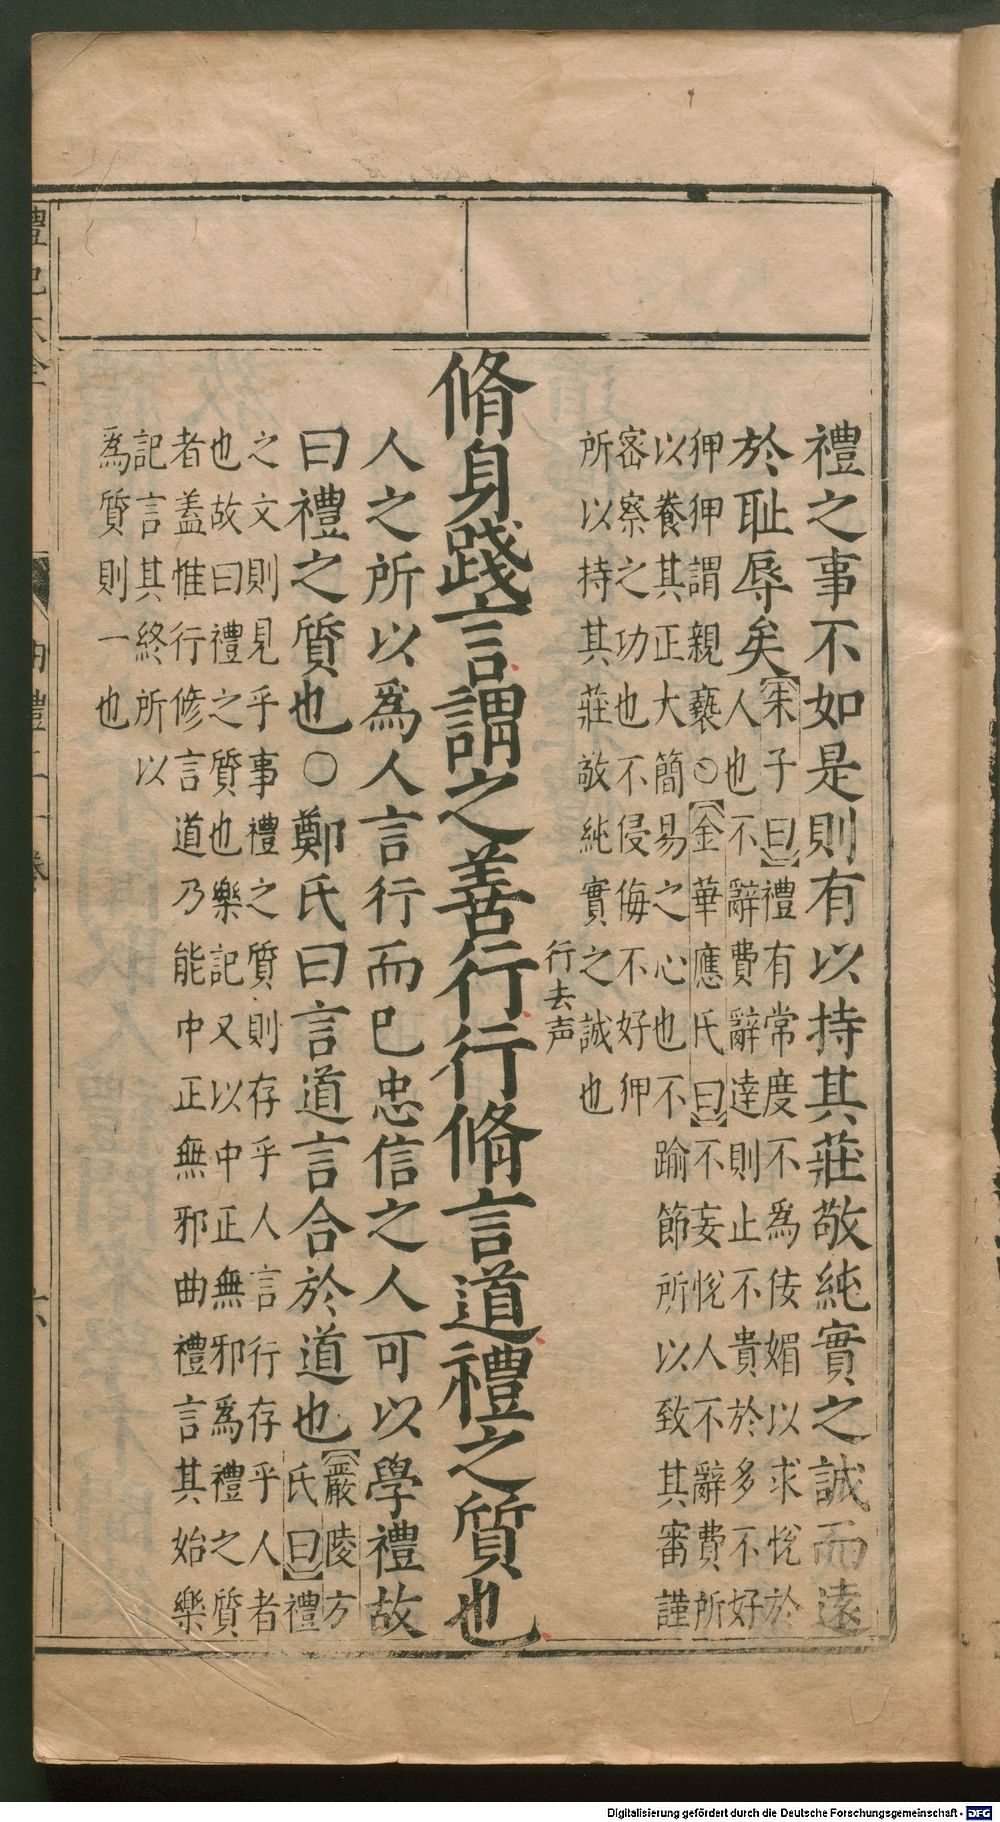 禮之事不如是則有以持其莊敬純實之誠而遠
於恥辱矣
朱子曰禮有常度不爲佞媚以求悅於
人也不辭費辭達則止不貴於多不好
狎狎謂親褻○金華應氏曰不妄悅人不辭費所
以養其正大簡易之心也不踰節所以致其審謹
密察之功也不侵侮不好狎
所以持其莊敬純實之誠也
行去声
脩身踐言謂之善行行脩言道禮之質也
人之所以爲人言行而已忠信之人可以學禮故
曰禮之質也○鄭氏曰言道言合於道也
嚴陵方
氏曰禮
之文則見乎事禮之質則存乎人言行存乎人者
也故曰禮之質也樂記又以中正無邪爲禮之質
者蓋惟行修言道乃能中正無邪曲禮言其始樂
記言其終所以
爲質則一也
Digitalisierung gefördert durch die Deutsche Forschungsgemeinschaft - DFG